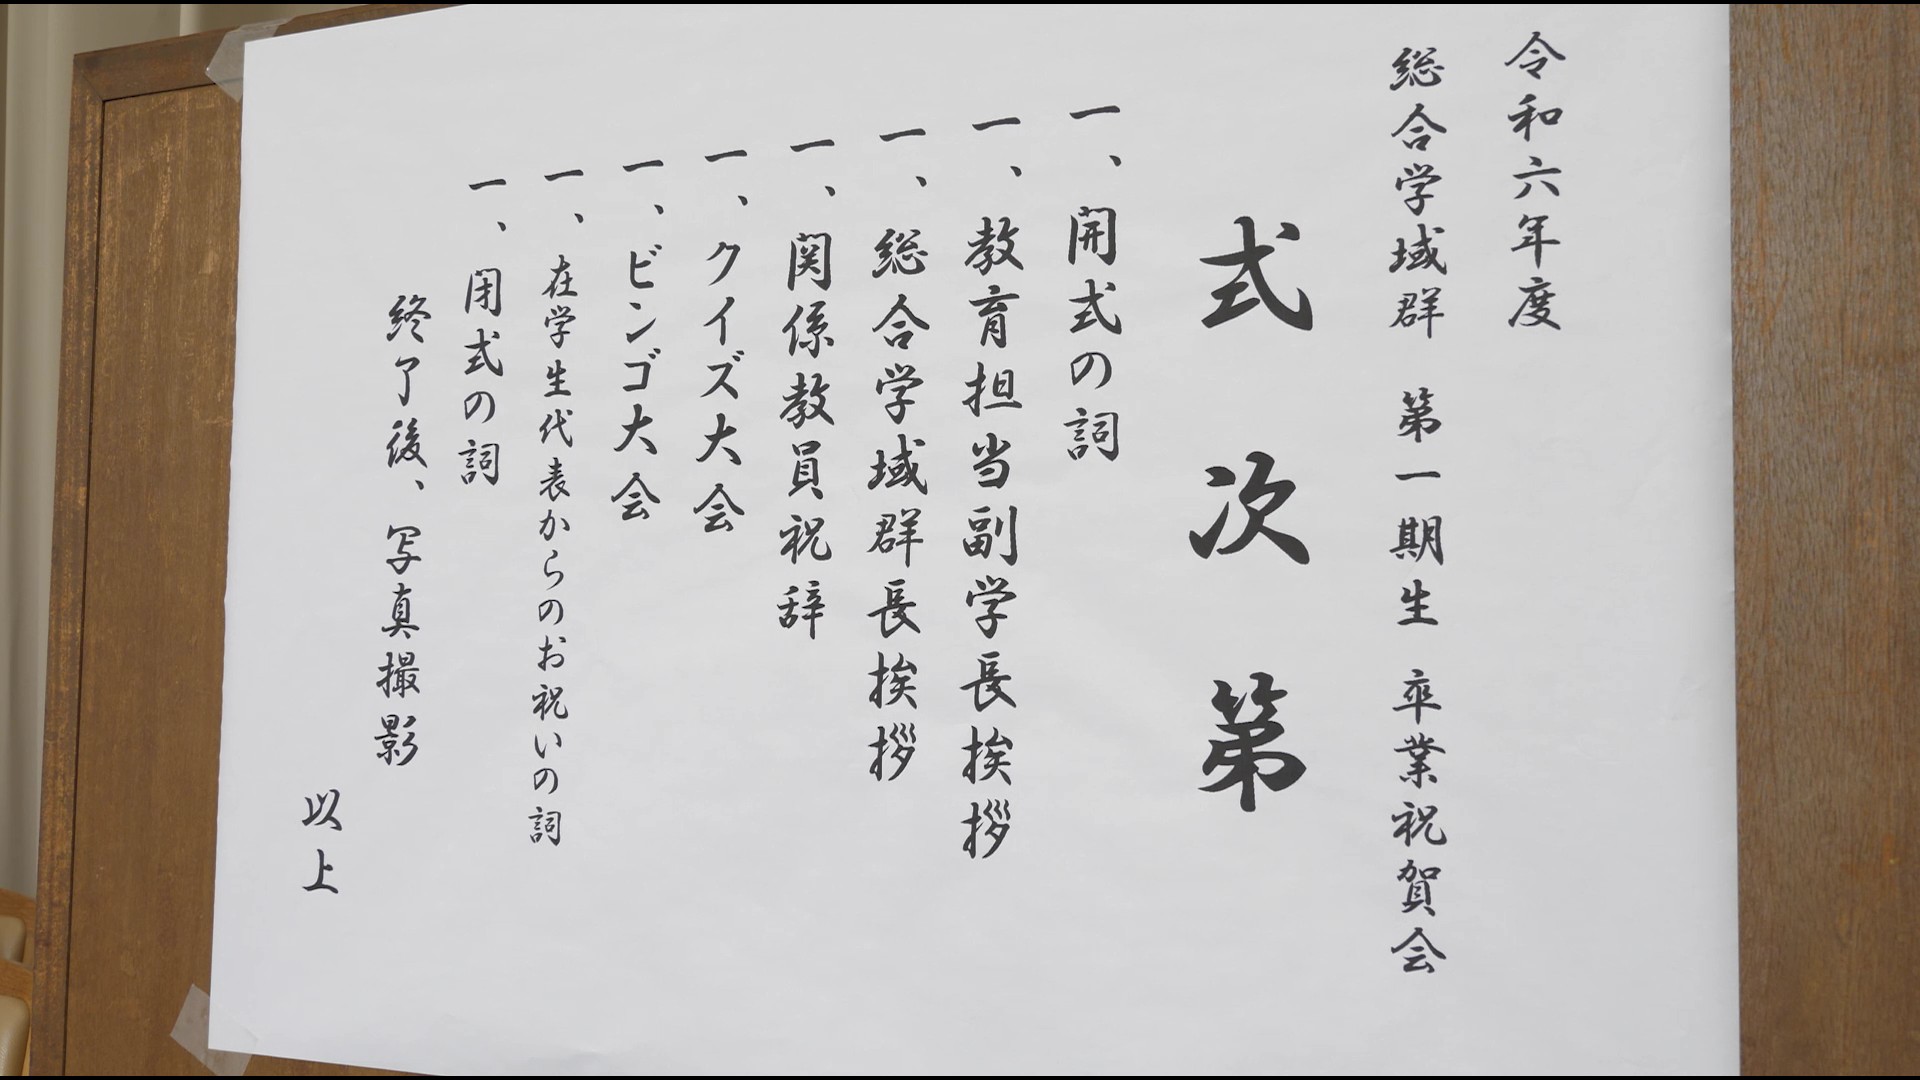 令和六年度
総合学域群 第一期生 卒業祝賀会
式次第
一、開式の詞
一、教育担当副学長挨拶
一、総合学域群長挨拶
一、関係教員祝辞
一、クイズ大会
一、ビンゴ大会
一、在学生代表からのお祝いの詞
一、閉式の詞
終了後、写真撮影
以上